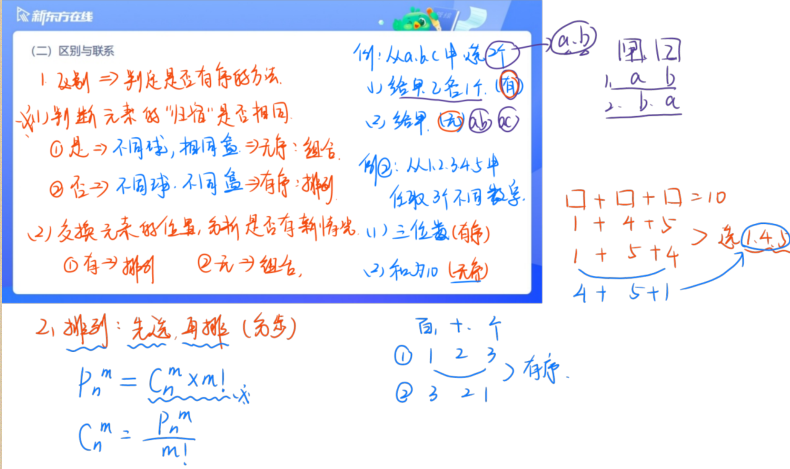 新东方在线
(二)区别与联系
1. 区别 ⇒ 判定是否有序的方法.
※(1) 判断元素的"归宿"是否相同.
① 是 ⇒ 不同球, 相同盒 ⇒ 无序: 组合.
② 否 ⇒ 不同球. 不同盒 ⇒ 有序: 排列
(2) 交换元素的位置, 分析是否有新情况
① 有 ⇒ 排列 ② 无 ⇒ 组合.
例: 从a.b.c中选2个 → a.b
(1) 给甲.乙各1个. (有)
(2) 给甲. (无) ab bc
例②: 从1.2.3.4.5中
任取3个不同数字.
(1) 三位数 (有序)
(2) 和为10 (无序)
甲 乙
1. a b
2. b. a
□ + □ + □ = 10
1 + 4 + 5
1 + 5 + 4 > 选 1.4.5
4 + 5 + 1
2. 排列: 先选, 再排 (分步)
P_n^m = C_n^m × m! ※
C_n^m = P_n^m / m!
百. 十. 个
① 1 2 3
② 3 2 1 > 有序.